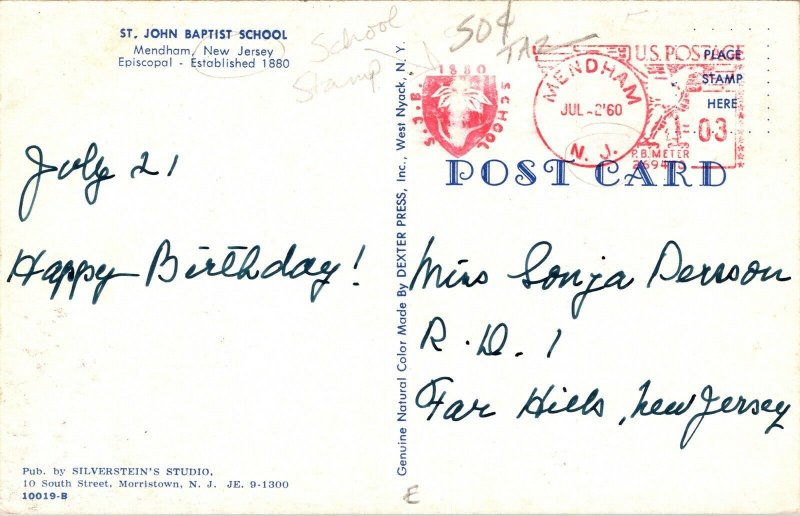 ST. JOHN BAPTIST SCHOOL
Mendham, New Jersey
Episcopal - Established 1880
School
Stamp
50¢
TAZ
1880
S.J.B. SCHOOL
MENDHAM
JUL-2'60
N. J.
U.S. POSTAGE
03
P.B. METER
PLACE
STAMP
HERE
POST CARD
July 21
Happy Birthday!
Genuine Natural Color Made By DEXTER PRESS, Inc., West Nyack, N. Y.
Miss Sonja Persson
R.D. 1
Far Hills, New Jersey
Pub. by SILVERSTEIN'S STUDIO,
10 South Street, Morristown, N. J. JE. 9-1300
10019-B
E